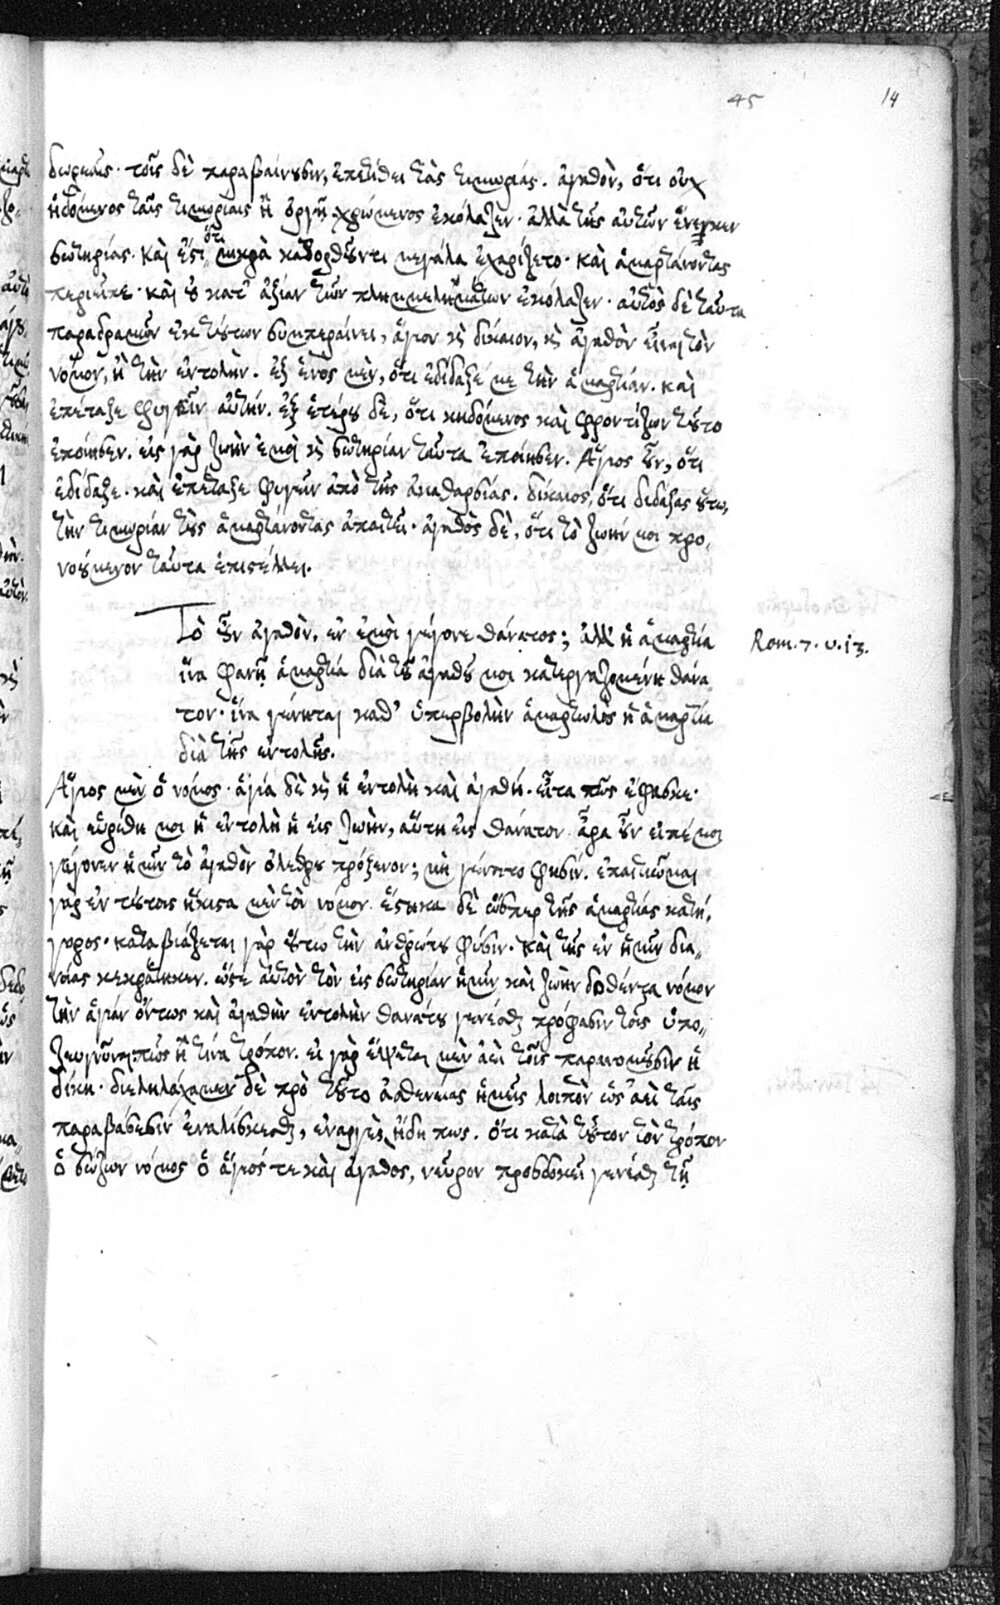 45 14
δωρεαῖς· τοῖς δὲ παραβαίνουσιν, ἐπετίθει τὰς τιμωρίας. ἀγαθὸν, ὅτι οὐχ
ἡδόμενος ταῖς τιμωρίαις ἢ ὀργῇ χρώμενος ἐκόλαζεν· ἀλλὰ τῆς αὐτῶν ἕνεκεν
σωτηρίας· καὶ ἔτι ὅτι μικρὰ κατορθοῦντι μεγάλα ἐχαρίζετο· καὶ ἁμαρτάνοντας
περιεῖπε· καὶ οὐ κατ' ἀξίαν τῶν πλημμελημάτων ἐκόλαζεν· αὐτὸς δὲ ταῦτα
παραδραμὼν ἐκ τούτων συμπεραίνει, ἅγιον καὶ δίκαιον, καὶ ἀγαθὸν εἶναι τὸν
νόμον, ἢ τὴν ἐντολήν. ἐξ ἑνὸς μὲν, ὅτι ἐδίδαξέ με τὴν ἁμαρτίαν. καὶ
ἐπέταξε φυγεῖν αὐτήν. ἐξ ἑτέρου δὲ, ὅτι κηδόμενος καὶ φροντίζων τοῦτο
ἐποίησεν. εἰς γὰρ ζωὴν ἐμοὶ καὶ σωτηρίαν ταῦτα ἐποίησεν. Ἅγιος οὖν, ὅτι
ἐδίδαξε· καὶ ἐπέταξε φυγεῖν ἀπὸ τῆς ἀκαθαρσίας. δίκαιος, ὅτι διδάξας οὕτω,
τὴν τιμωρίαν τοὺς ἁμαρτάνοντας ἀπαιτεῖ· ἀγαθὸς δὲ, ὅτι τὸ ζωήν μοι προ„
νούμενον ταῦτα ἐπιστέλλει.
Τὸ οὖν ἀγαθὸν, ἐν ἐμοὶ γέγονε θάνατος; ἀλλ' ἡ ἁμαρτία
Rom. 7. v. 13.
ἵνα φανῇ ἁμαρτία διὰ τοῦ ἀγαθοῦ μοι κατεργαζομένη θάνα
τον· ἵνα γένηται καθ' ὑπερβολὴν ἁμαρτωλὸς ἡ ἁμαρτία
διὰ τῆς ἐντολῆς.
Ἅγιος μὲν ὁ νόμος· ἁγία δὲ καὶ ἡ ἐντολὴ καὶ ἀγαθή. εἶτα πῶς ἔφασκε·
καὶ εὑρέθη μοι ἡ ἐντολὴ ἡ εἰς ζωὴν, αὕτη εἰς θάνατον. ἆρα οὖν εἰπέ μοι
γέγονεν ἡμῖν τὸ ἀγαθὸν ὀλέθρου πρόξενον; μὴ γένοιτο φησίν. ἐπαιτιῶμαι
γὰρ ἐν τούτοις ἥκιστα μὲν τὸν νόμον. ἕστηκα δὲ ὥσπερ τῆς ἁμαρτίας κατή„
γορος. καταβιάζεται γὰρ οὕτω τὴν ἀνθρώπου φύσιν. καὶ τῆς ἐν ἡμῖν δια„
νοίας κεκράτηκεν. ὥστε αὐτὸν τὸν εἰς σωτηρίαν ἡμῖν καὶ ζωὴν δοθέντα νόμον
τὴν ἁγίαν ὄντως καὶ ἀγαθὴν ἐντολὴν θανάτου γενέσθαι πρόφασιν τοῖς ὑπο„
ζευγνῦναι πως ἢ τίνα τρόπον. εἰ γὰρ ἕψεται μὲν ἀεὶ τοῖς παρανομοῦσιν ἡ
δίκη. διεληλάχαμεν δὲ πρὸ τοῦτο ἀσθενείας ἡμεῖς λοιπὸν ὡς ἀεὶ ταῖς
παραβάσεσιν ἐναλίσκεσθαι, ἐναργὲς ἤδη πως. ὅτι κατὰ τοῦτον τὸν τρόπον
ὁ σώζων νόμος ὁ ἅγιός τε καὶ ἀγαθὸς, νεῦρον προσδοκεῖ γενέσθαι τῇ